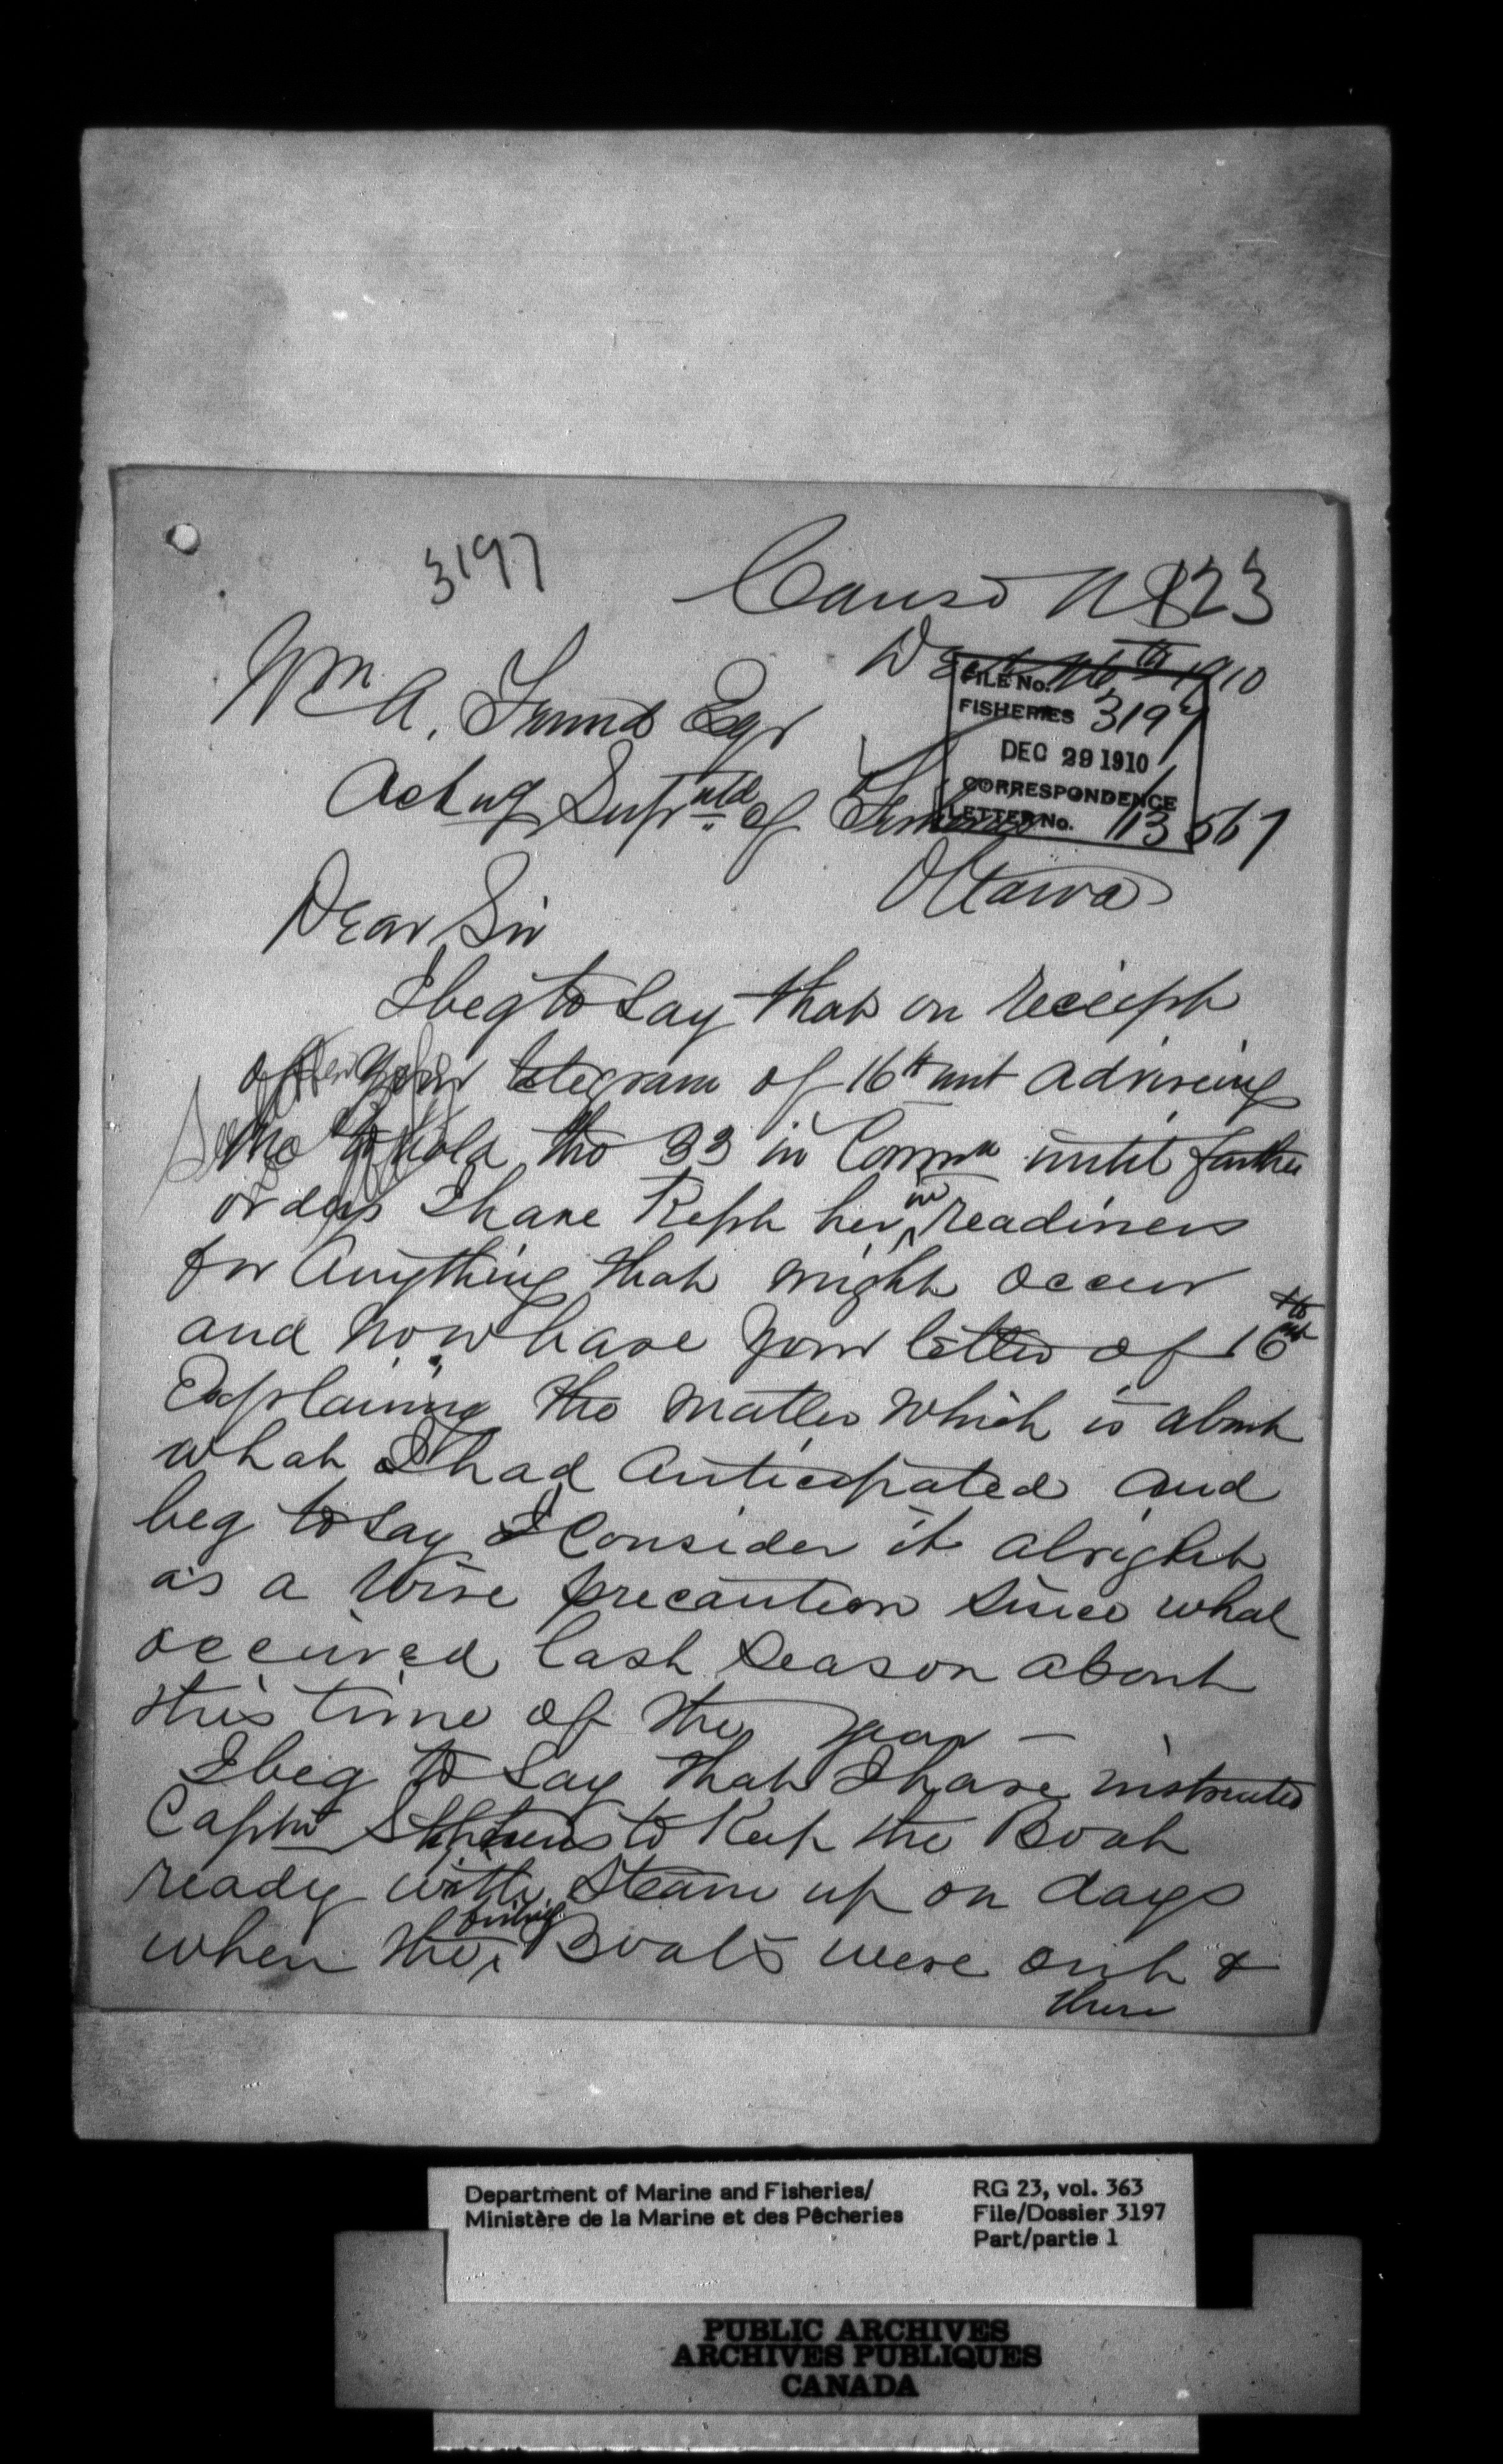 3197
Canso N S 123
Dec 26th 1910
Wm A. Found Esqr
FILE No.
FISHERIES 3197
DEC 29 1910
CORRESPONDENCE
LETTER No. 113567
Acting Suptntd of Fisheries
Ottawa
Dear Sir
I beg to say that on receipt
of your telegram of 16th inst adviseing
me to hold the 33 in Commn until further
orders I have Kept her in readiness
for anything that might occur
and now have your letter of 16th inst
Explaining the matter which is about
what I had anticipated and
beg to say I Consider it alright
as a wise precaution since what
occured last season about
this time of the year —
I beg to say that I have instructed
Captn Stephens to Keep the Boat
ready with steam up on days
when the fishing Boats were out &
there
Department of Marine and Fisheries/
Ministère de la Marine et des Pêcheries
RG 23, vol. 363
File/Dossier 3197
Part/partie 1
PUBLIC ARCHIVES
ARCHIVES PUBLIQUES
CANADA